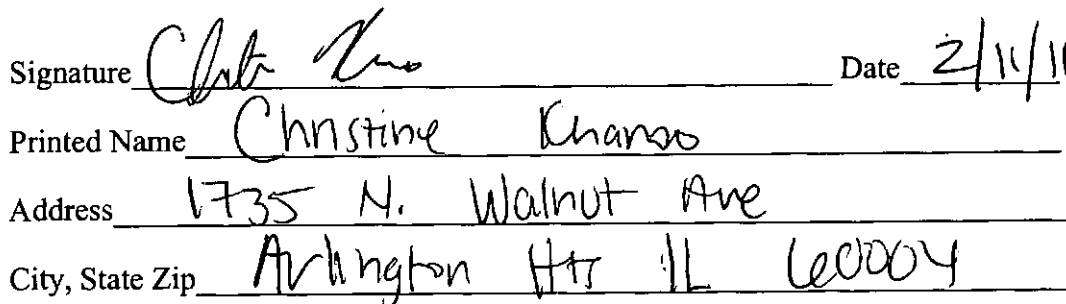 Signature Date 2/11/11
Printed Name Christine Khamo
Address 1735 N. Walnut Ave
City, State Zip Arlington Hts IL 60004